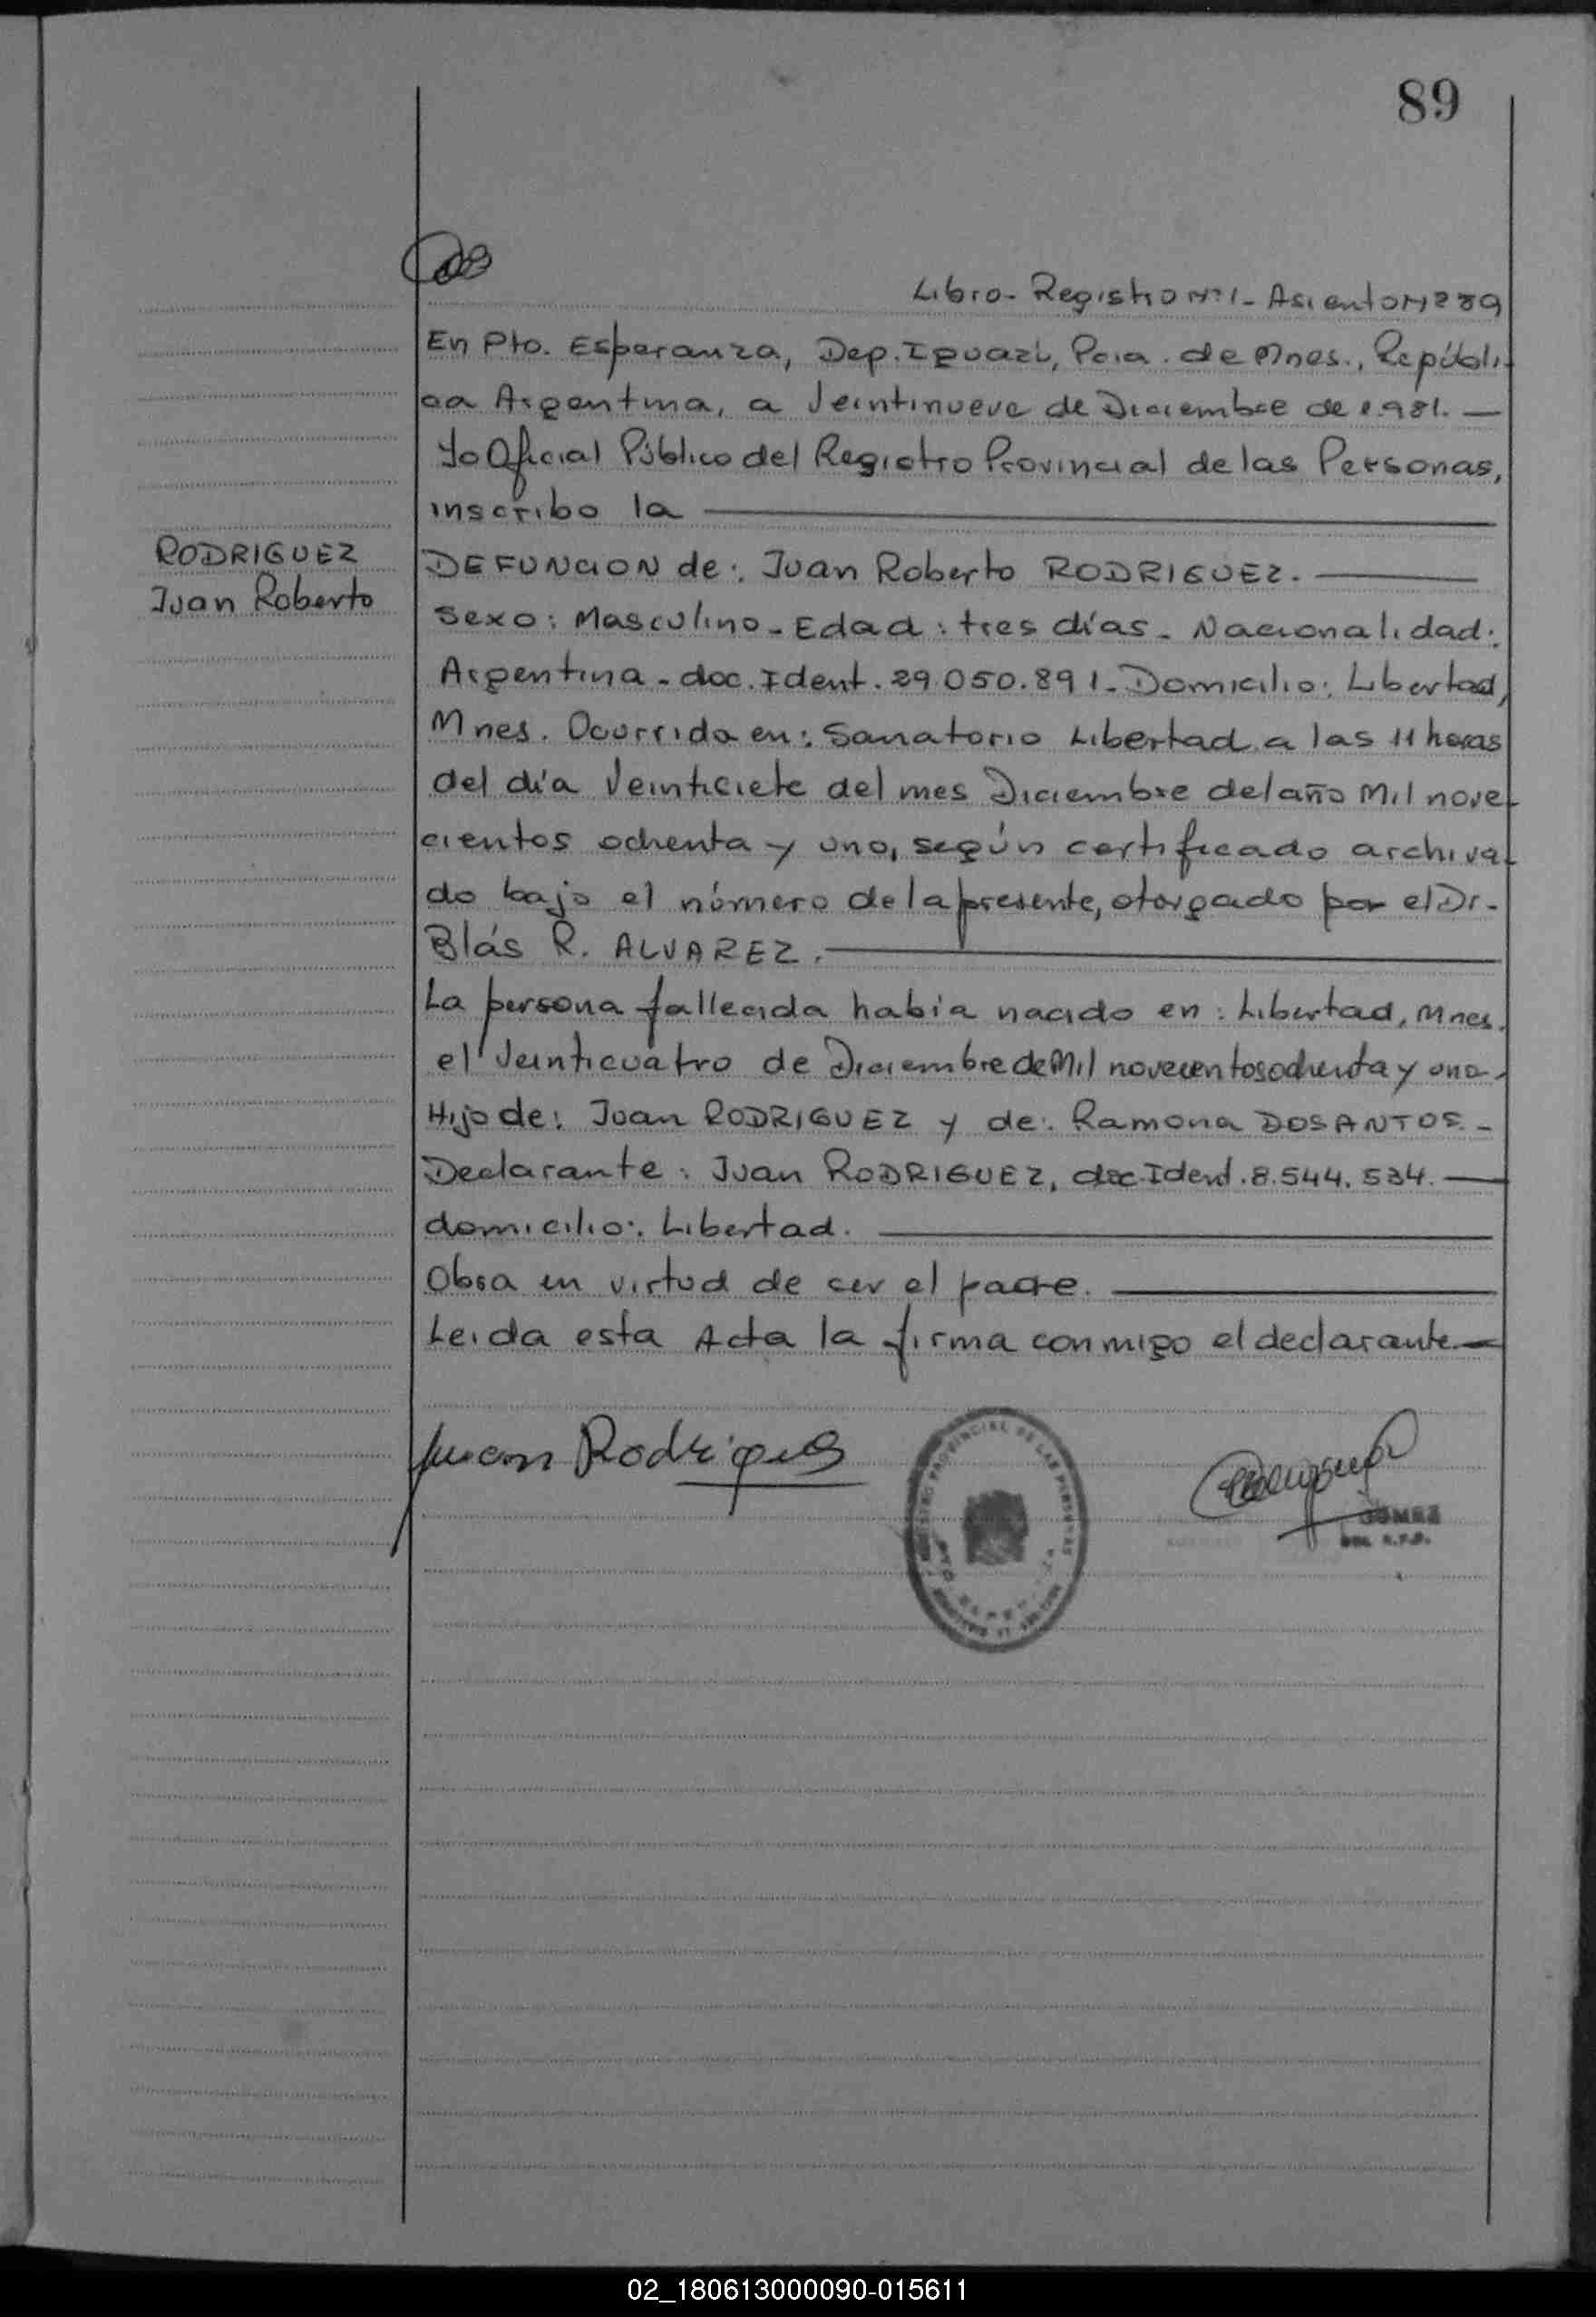 89
Libro - Registro Nº1 - Asiento Nº 89
En Pto. Esperanza, Dep. Iguazú, Pcia. de Mnes., Repúbli-
ca Argentina, a Veintinueve de Diciembre de 1981. —
Yo Oficial Público del Registro Provincial de las Personas,
inscribo la
RODRIGUEZ
Juan Roberto
DEFUNCION de: Juan Roberto RODRIGUEZ.
Sexo: Masculino - Edad: tres días - Nacionalidad:
Argentina - doc. Ident. 29.050.891 - Domicilio: Libertad,
Mnes. Ocurrida en: Sanatorio Libertad a las 11 horas
del día Veinticiete del mes Diciembre del año Mil nove-
cientos ochenta y uno, según certificado archiva-
do bajo el número de la presente, otorgado por el Dr.
Blás R. ALVAREZ.
La persona fallecida había nacido en: Libertad, Mnes.
el Veinticuatro de Diciembre de Mil novecientos ochenta y uno.
Hijo de: Juan RODRIGUEZ y de: Ramona DOSANTOS. -
Declarante: Juan RODRIGUEZ, doc. Ident. 8.544.534. —
domicilio: Libertad.
Obra en virtud de cer el padre.
Leida esta Acta la firma conmigo el declarante —
Juan Rodriguez
REGISTRO PROVINCIAL DE LAS PERSONAS
GOMEZ
DEL R.P.P.
02_180613000090-015611